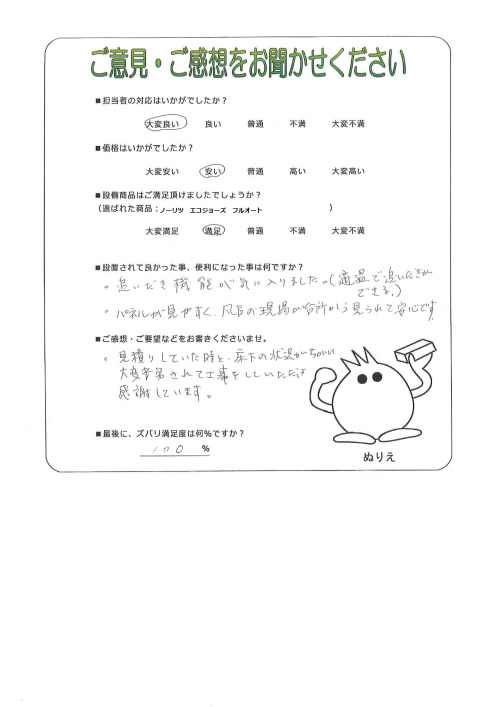 ご意見・ご感想をお聞かせください
■担当者の対応はいかがでしたか？
大変良い 良い 普通 不満 大変不満
■価格はいかがでしたか？
大変安い 安い 普通 高い 大変高い
■設備商品はご満足頂けましたでしょうか？
（選ばれた商品：ノーリツ エコジョーズ フルオート ）
大変満足 満足 普通 不満 大変不満
■設置されて良かった事、便利になった事は何ですか？
。追いだき機能が気に入りました。(適温で追いだきが
できる。)
。パネルが見やすく、風呂の現場が台所から見られて安心です。
■ご感想・ご要望などをお書きくださいませ。
。見積りしていた時と、床下の状況がちがい
大変苦労されて工事をしていただき
感謝しています。
■最後に、ズバリ満足度は何%ですか？
100 %
ぬりえ